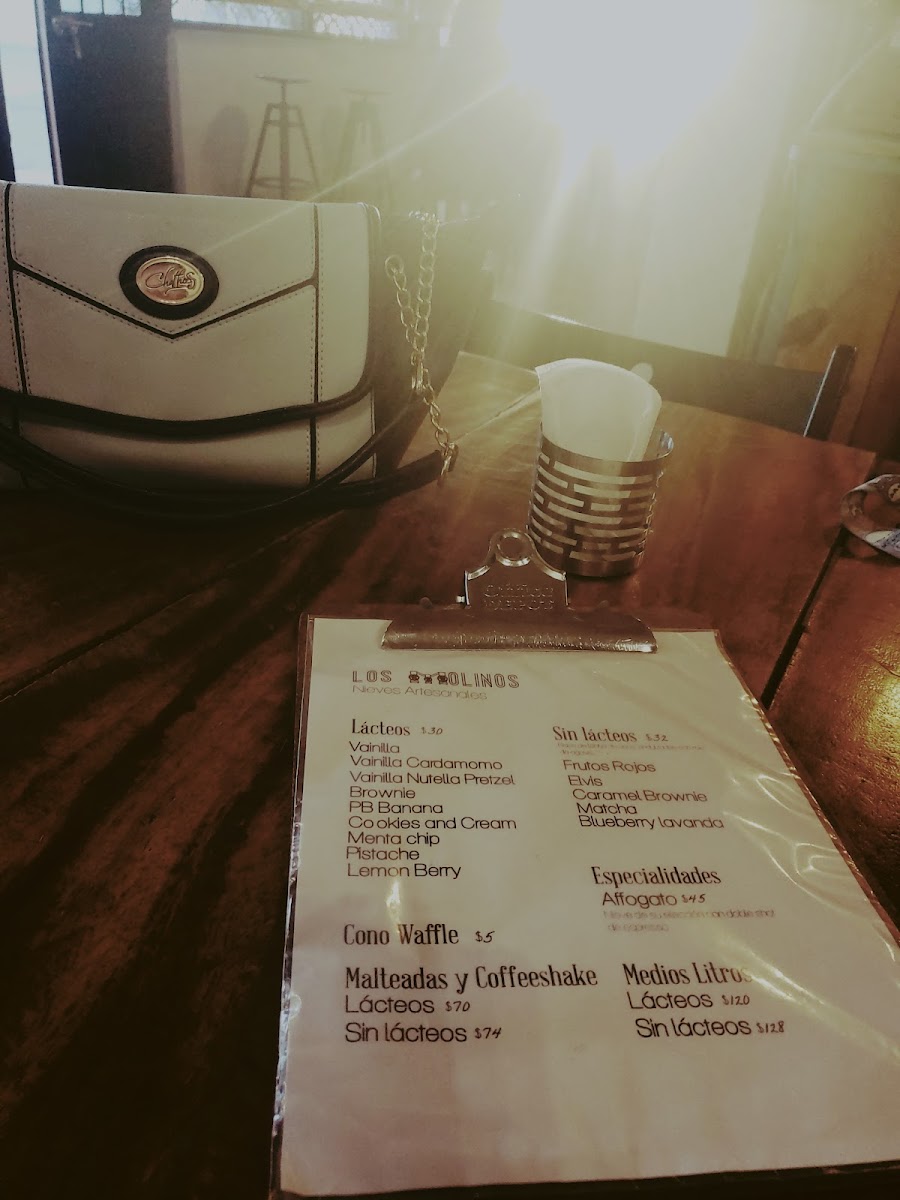 Office
DEPOT
LOS OLINOS
Nieves Artesanales
Lácteos $30
Vainilla
Vainilla Cardamomo
Vainilla Nutella Pretzel
Brownie
PB Banana
Cookies and Cream
Menta chip
Pistache
Lemon Berry
Sin lácteos $32
Frutos Rojos
Elvis
Caramel Brownie
Matcha
Blueberry lavanda
Especialidades
Affogato $45
Nieve de su elección con doble shot
de espresso
Cono Waffle $5
Malteadas y Coffeeshake
Lácteos $70
Sin lácteos $74
Medios Litros
Lácteos $120
Sin lácteos $128